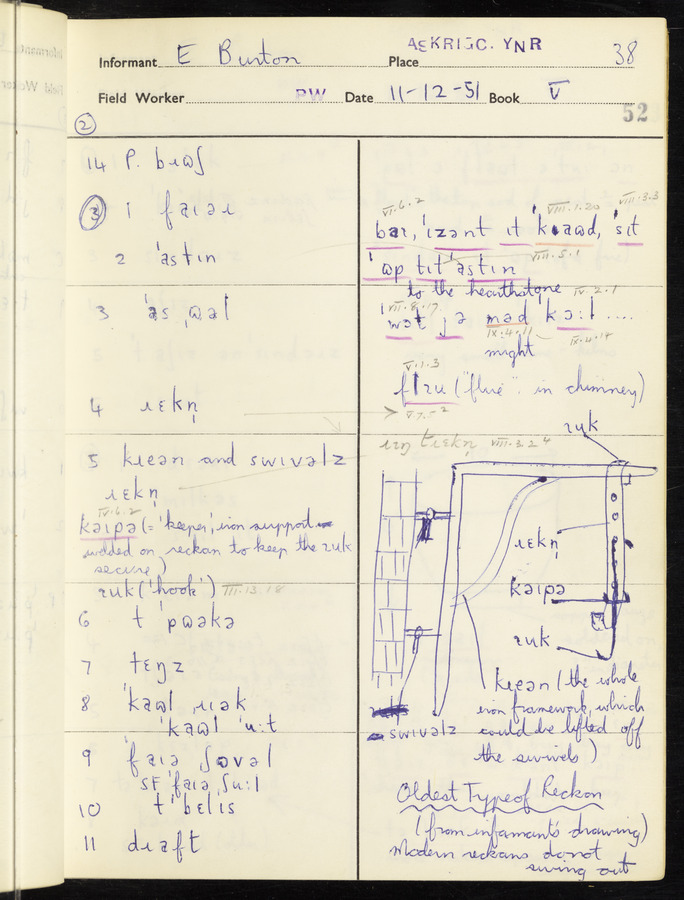 Informant E Burton Place ASKRIGG. YNR 38
Field Worker PW Date 11-12-51 Book V
52
②
14 P. bɹɷʃ
③ 1 faɪəɹ
2 ˈastɪn
3 ˈas ˌɷəl
4 ɹɛkn̩
5 kɹɛən and swɪvəlz
ɹɛkn̩
VI.6.2
kəɪpə (= 'keeper', iron support
welded on reckan to keep the ɪuk
secure)
ɪuk ('hook') III.13.18
6 t ˈpɷəkə
7 tɛŋz
8 ˈkaɷl ˌɹɛak
ˈkaɷl ˈu:t
9 ˈfaɪə ʃɷvəl
SF ˈfaɪə ʃu:l
10 t ˈbɛlɪs
11 dɹaft
VI.6.2 VIII.1.20 VIII.3.3
ˈsɪt
VIII.5.1
ˈɷp tɪt ˈastɪn
to the hearthstone IV.2.1
VII.8.17
ˈwɷt jə məd kɔ:l ....
IX.4.11 IX.4.14
might
V.1.3
flɪu ("flue" in chimney)
> V.7.5²
ɪuk
VIII.3.2
ɹɛkn̩
kəɪpə
ɪuk
kɹɛən (the whole
iron framework, which
could be lifted off
the swivels)
swɪvəlz
Oldest Type of Reckon
(from informant's drawing)
Modern reckans do not
swing out